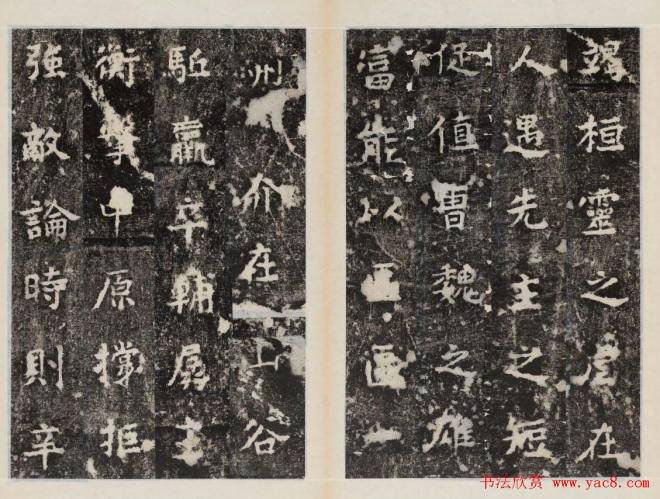 竭桓靈之虐在
人遇先主之短
促值曹魏之雄
富能以區區一
州介在山谷
駈羸卒輔孱主
衡擊中原撐拒
強敵論時則辛
书法欣赏 www.yac8.com